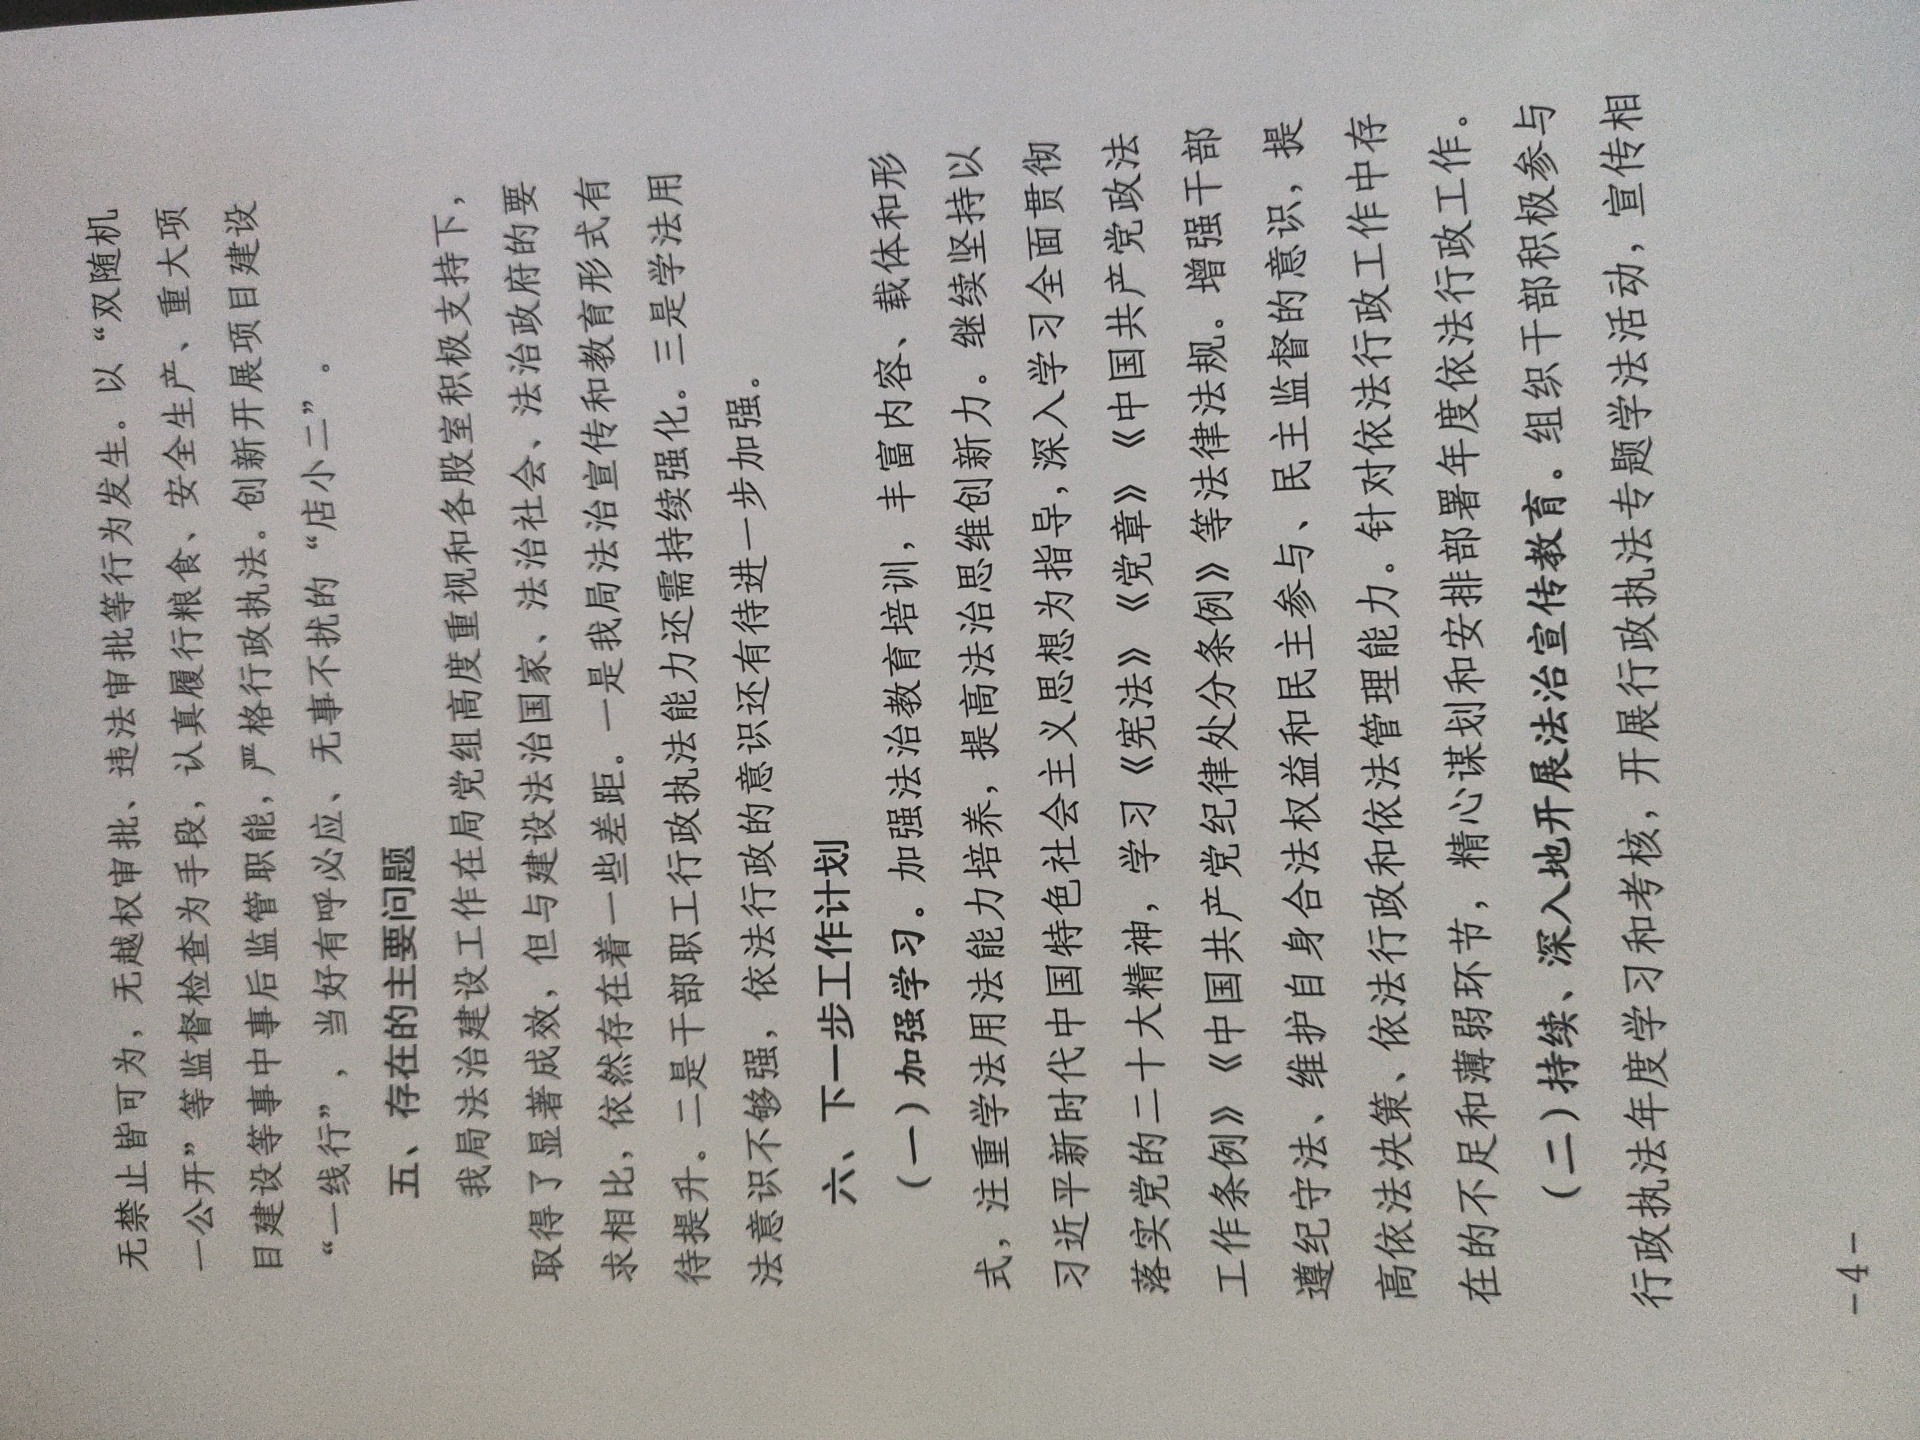 无禁止皆可为，无越权审批、违法审批等行为发生。以“双随机
一公开”等监督检查为手段，认真履行粮食、安全生产、重大项
目建设等事中事后监管职能，严格行政执法。创新开展项目建设
“一线行”，当好有呼必应、无事不扰的“店小二”。
五、存在的主要问题
我局法治建设工作在局党组高度重视和各股室积极支持下，
取得了显著成效，但与建设法治国家、法治社会、法治政府的要
求相比，依然存在着一些差距。一是我局法治宣传和教育形式有
待提升。二是干部职工行政执法能力还需持续强化。三是学法用
法意识不够强，依法行政的意识还有待进一步加强。
六、下一步工作计划
（一）加强学习。加强法治教育培训，丰富内容、载体和形
式，注重学法用法能力培养，提高法治思维创新力。继续坚持以
习近平新时代中国特色社会主义思想为指导，深入学习全面贯彻
落实党的二十大精神，学习《宪法》《党章》《中国共产党政法
工作条例》《中国共产党纪律处分条例》等法律法规。增强干部
遵纪守法、维护自身合法权益和民主参与、民主监督的意识，提
高依法决策、依法行政和依法管理能力。针对依法行政工作中存
在的不足和薄弱环节，精心谋划和安排部署年度依法行政工作。
（二）持续、深入地开展法治宣传教育。组织干部积极参与
行政执法年度学习和考核，开展行政执法专题学法活动，宣传相
-4-